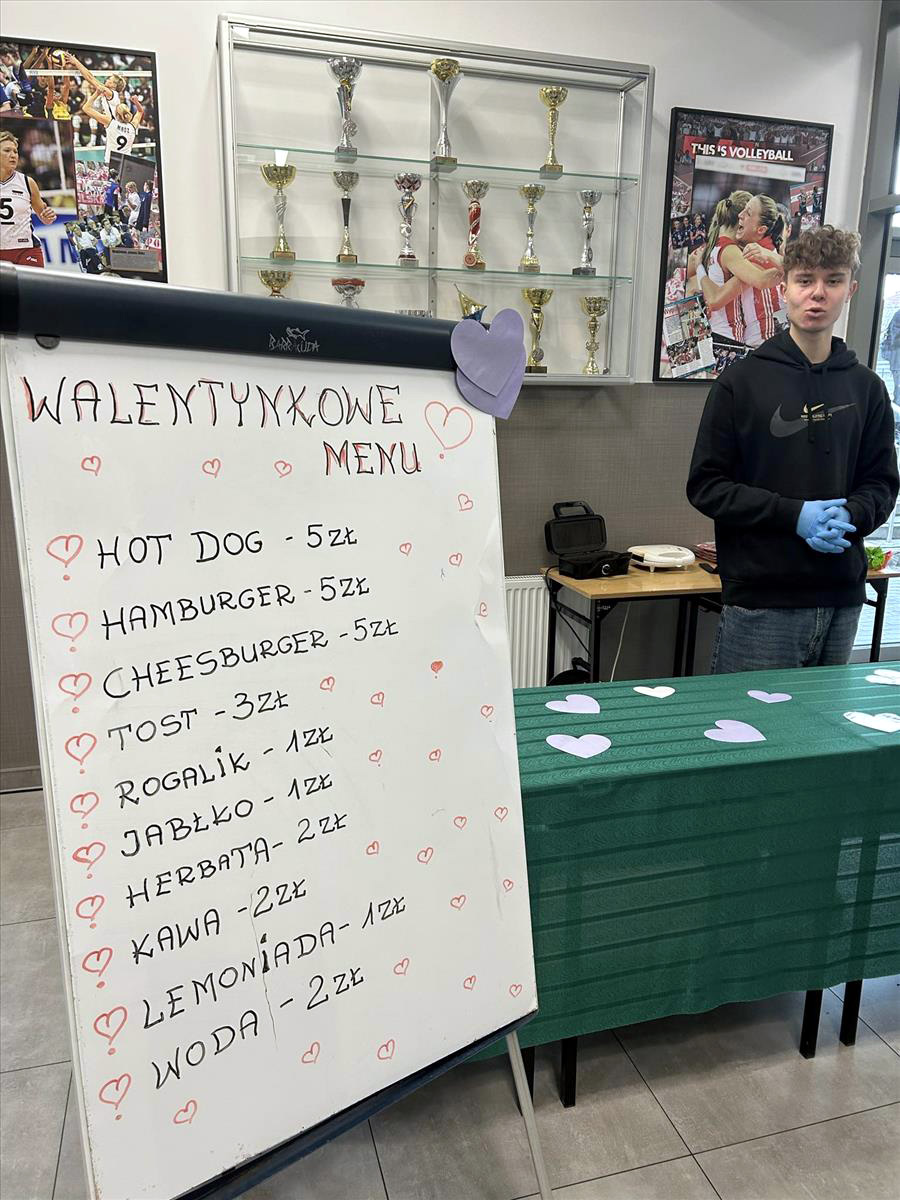 9
5
THIS IS VOLLEYBALL
BARRACUDA
WALENTYNKOWE
MENU
HOT DOG - 5 ZŁ
HAMBURGER - 5ZŁ
CHEESBURGER - 5ZŁ
TOST - 3ZŁ
ROGALIK - 1ZŁ
JABŁKO - 1ZŁ
HERBATA - 2ZŁ
KAWA - 2ZŁ
LEMONIADA - 1ZŁ
WODA - 2ZŁ